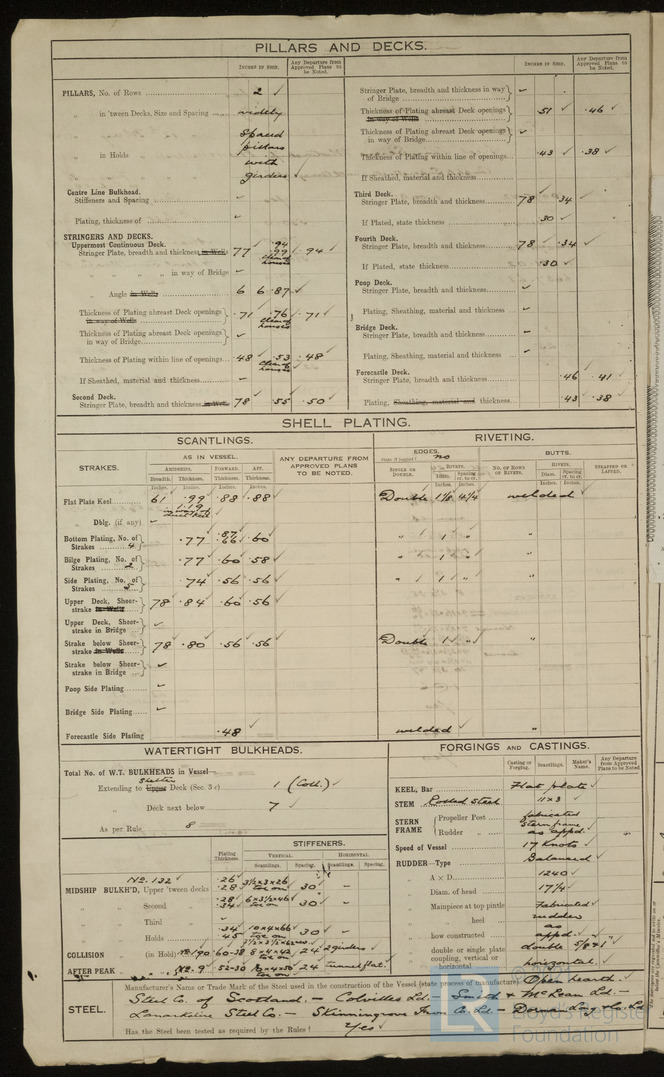 PILLARS AND DECKS.
INCHES IN SHIP.
Any Departure from Approved Plans to be Noted.
PILLARS, No. of Rows 2 ✓
„ in 'tween Decks, Size and Spacing widely
spaced
„ in Holds pillars
with
girders ✓
Centre Line Bulkhead.
Stiffeners and Spacing
Plating, thickness of
STRINGERS AND DECKS.
Uppermost Continuous Deck.
Stringer Plate, breadth and thickness in Wells 77 .94 .99 clear of houses .94
„ „ „ „ in way of Bridge
„ Angle in Wells 6 6 .87
Thickness of Plating abreast Deck openings in way of Wells .71 .76 clear of houses .71
Thickness of Plating abreast Deck openings in way of Bridge
Thickness of Plating within line of openings .48 .53 clear of houses .48
If Sheathed, material and thickness
Second Deck.
Stringer Plate, breadth and thickness in Wells 78 .55 .50
INCHES IN SHIP.
Any Departure from Approved Plans to be Noted.
Stringer Plate, breadth and thickness in way of Bridge
Thickness of Plating abreast Deck openings in way of Wells .51 .46
Thickness of Plating abreast Deck openings in way of Bridge
Thickness of Plating within line of openings .43 .38
If Sheathed, material and thickness
Third Deck.
Stringer Plate, breadth and thickness 78 .34
If Plated, state thickness .30
Fourth Deck.
Stringer Plate, breadth and thickness 78 .34
If Plated, state thickness .30
Poop Deck.
Stringer Plate, breadth and thickness
Plating, Sheathing, material and thickness
Bridge Deck.
Stringer Plate, breadth and thickness
Plating, Sheathing, material and thickness
Forecastle Deck.
Stringer Plate, breadth and thickness .46 .41
Plating, Sheathing, material and thickness .43 .38
SHELL PLATING.
SCANTLINGS.
RIVETING.
STRAKES.
AS IN VESSEL.
AMIDSHIPS. FORWARD. AFT.
Breadth. Thickness. Thickness. Thickness.
Inches. Inches. Inches. Inches.
ANY DEPARTURE FROM APPROVED PLANS TO BE NOTED.
EDGES.
State if joggled? no
SINGLE OR DOUBLE.
RIVETS.
Diam. Spacing cr. to cr.
Inches. Inches.
BUTTS.
NO. OF ROWS OF RIVETS.
RIVETS.
Diam. Spacing cr. to cr.
Inches. Inches.
STRAPPED OR LAPPED.
Flat Plate Keel 61 .99 .88 .88 Double 1⅛ 4¼ welded
1.19
Dblg. (if any)
Bottom Plating, No. of Strakes 4 .77 .87 .66 .60 „ 1 „ „
Bilge Plating, No. of Strakes 2 .77 .60 .58 „ 1 „ „
Side Plating, No. of Strakes 5 .74 .56 .56 „ 1 „ „
Upper Deck, Sheerstrake in Wells 78 .84 .60 .56
Upper Deck, Sheerstrake in Bridge
Strake below Sheerstrake in Wells 78 .80 .56 .56 Double 1 „ „
Strake below Sheerstrake in Bridge
Poop Side Plating
Bridge Side Plating
Forecastle Side Plating .48 welded „
WATERTIGHT BULKHEADS.
Total No. of W.T. BULKHEADS in Vessel—
Extending to Upper Shelter Deck (Sec. 3 c) 1 (Coll.)
„ Deck next below 7
As per Rule 8
Plating Thickness.
STIFFENERS.
VERTICAL. HORIZONTAL.
Scantlings. Spacing. Scantlings. Spacing.
No. 132
MIDSHIP BULKH'D, Upper 'tween decks .26 .28 3½x3x26 toe on 30 –
„ „ Second „ .28 .34 6x3½x46 toe on 30 –
„ „ Third „
„ „ Holds .34 .45 10x4x66 toe on 30 –
COLLISION „ (in Hold) No. 190 .60-.38 8x4x42 toe on 24 2 girders
AFTER PEAK „ „ No. 9 .52-.30 24 tunnel flat.
FORGINGS AND CASTINGS.
Casting or Forging. Scantlings. Maker's Name. Any Departure from Approved Plans to be Noted
KEEL, Bar Flat plate
STEM Rolled Steel 11x3
STERN FRAME { Propeller Post fabricated
Stern frame
Rudder „ as appd.
Speed of Vessel 17 knots
RUDDER—Type Balanced
„ A x D 1240
„ Diam. of head 17¼
„ Mainpiece at top pintle Fabricated
„ „ heel rudder
„ how constructed as appd.
„ double or single plate double
coupling, vertical or horizontal horizontal.
STEEL.
Manufacturer's Name or Trade Mark of the Steel used in the construction of the Vessel (state process of manufacture). Open hearth.
Steel Co. of Scotland. – Colvilles Ld. – Smith & McLean Ld. –
Lanarkshire Steel Co. – Skinningrove Iron Co. Ld – Dorman Long & Co. Ld
Has the Steel been tested as required by the Rules? Yes
© 2021
Lloyd's Register
Foundation